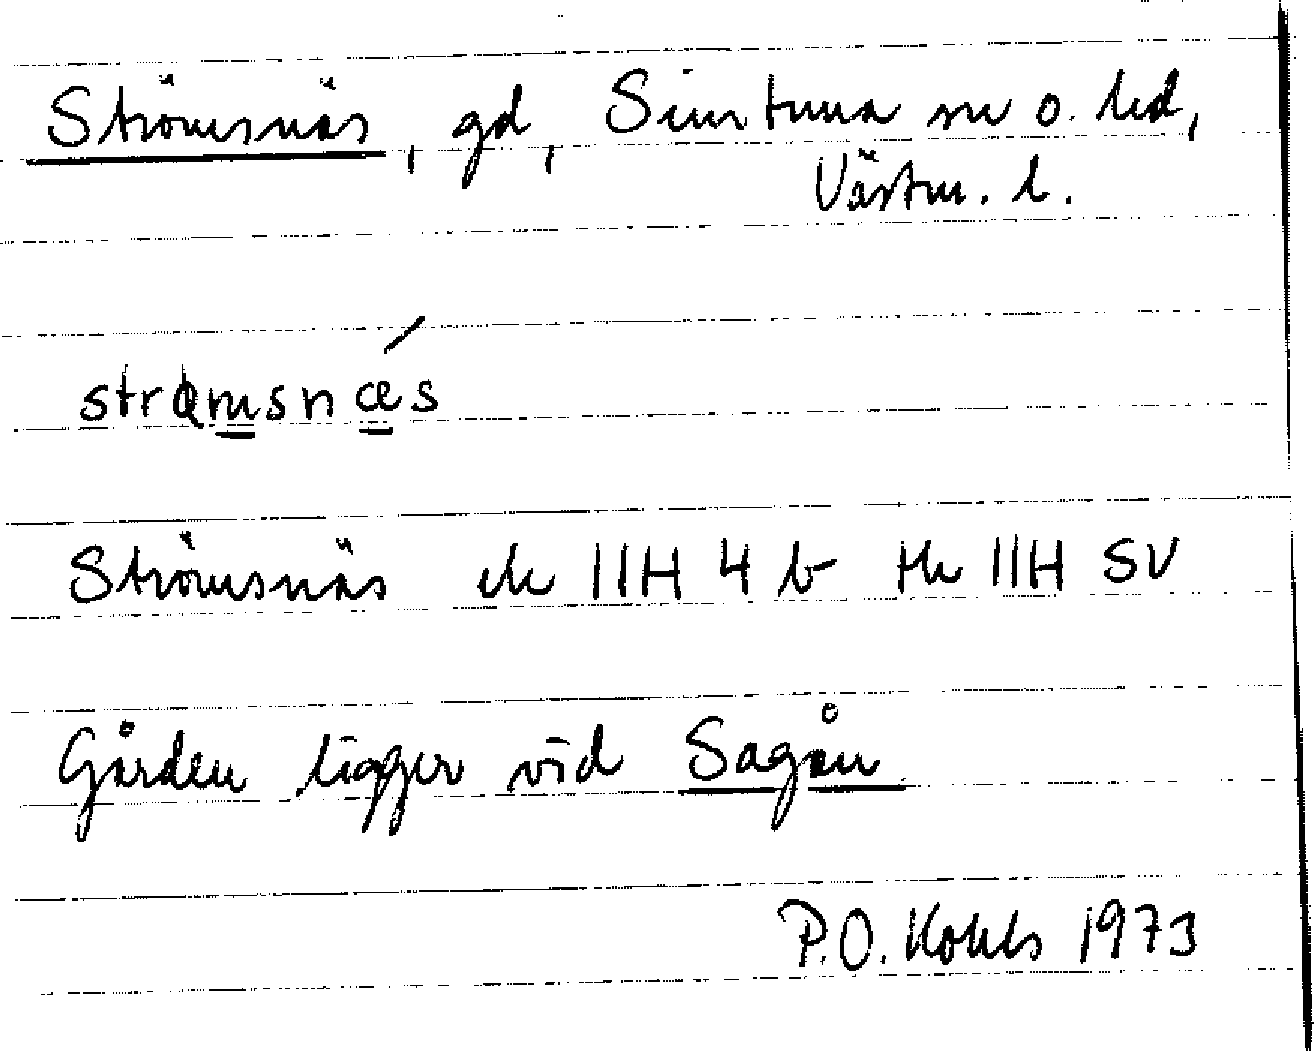 Strömsnäs, gd, Simtuna sn o. hd,
Västm. l.
Strömsnäs ek 11H 4 b tk 11H SV
Gården ligger vid Sagån
P.O. Kohls 1973